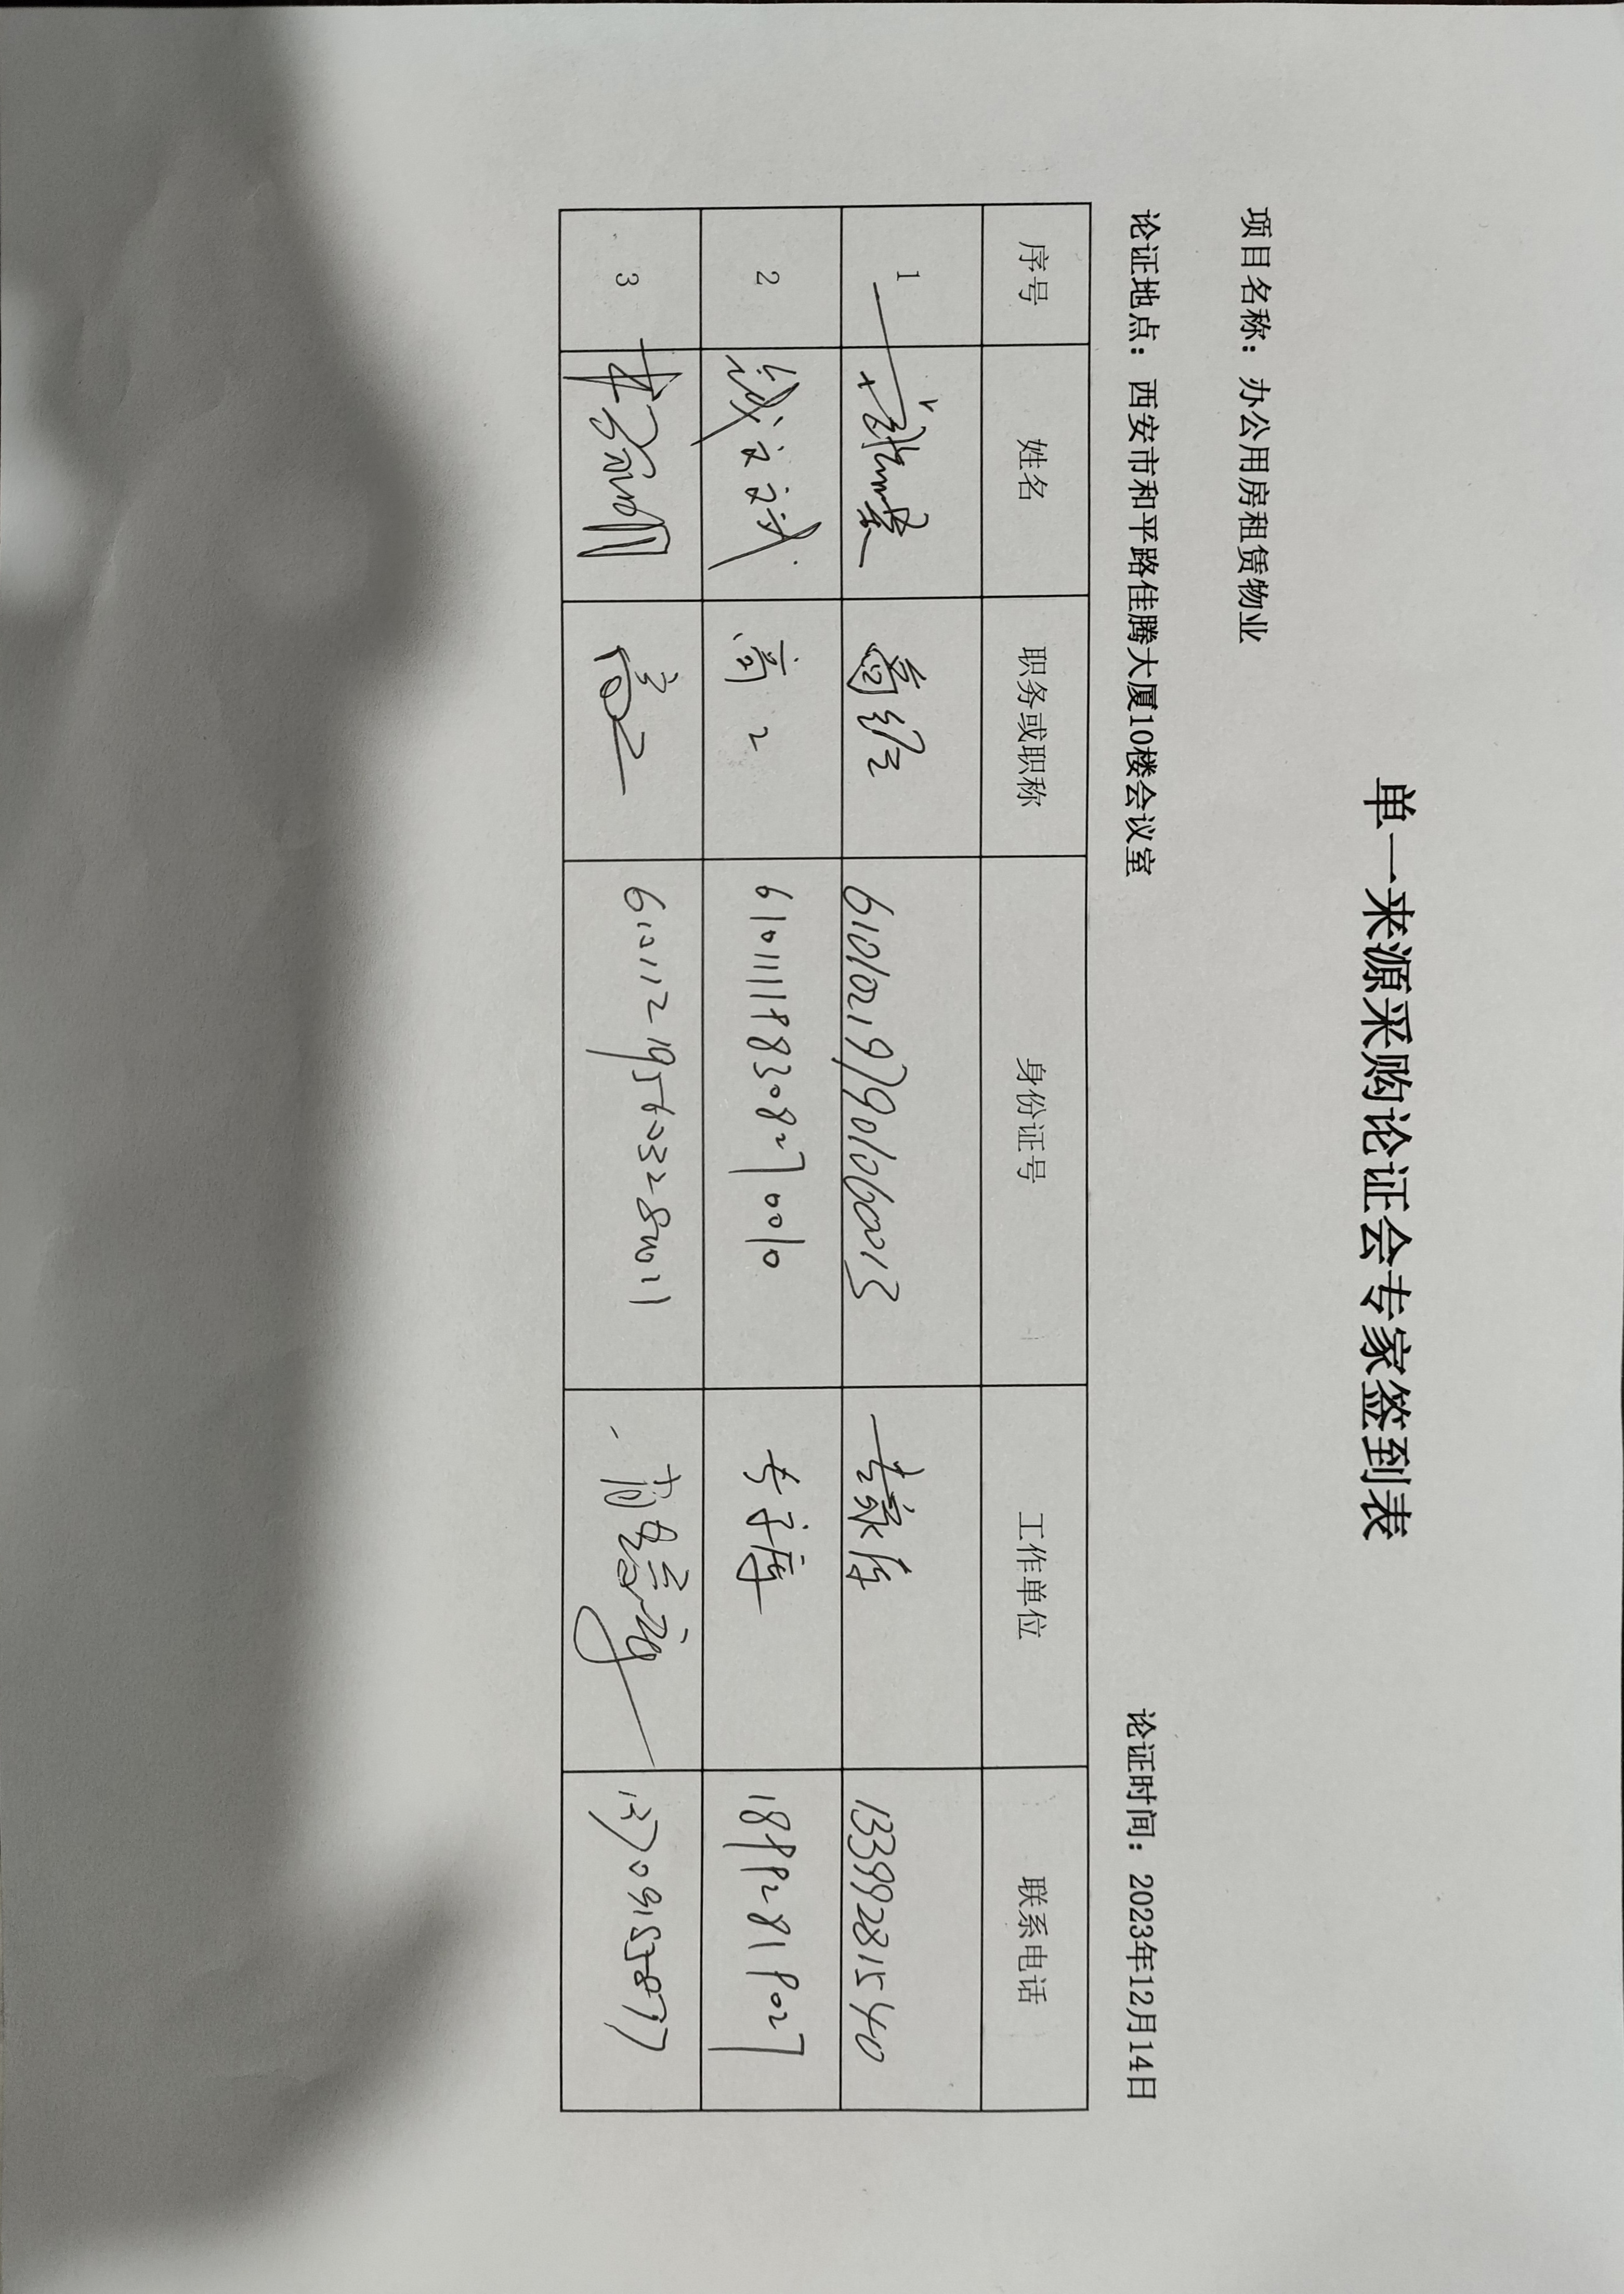 单一来源采购论证会专家签到表
项目名称：办公用房租赁物业
论证地点：西安市和平路佳腾大厦10楼会议室 论证时间：2023年12月14日
序号 姓名 职务或职称 身份证号 工作单位 联系电话
1 610102197901060013 专家库 13399281540
2 文斌 高工 610111198308270010 专家库 18992819027
3 高工 610112195603280011 13709155877